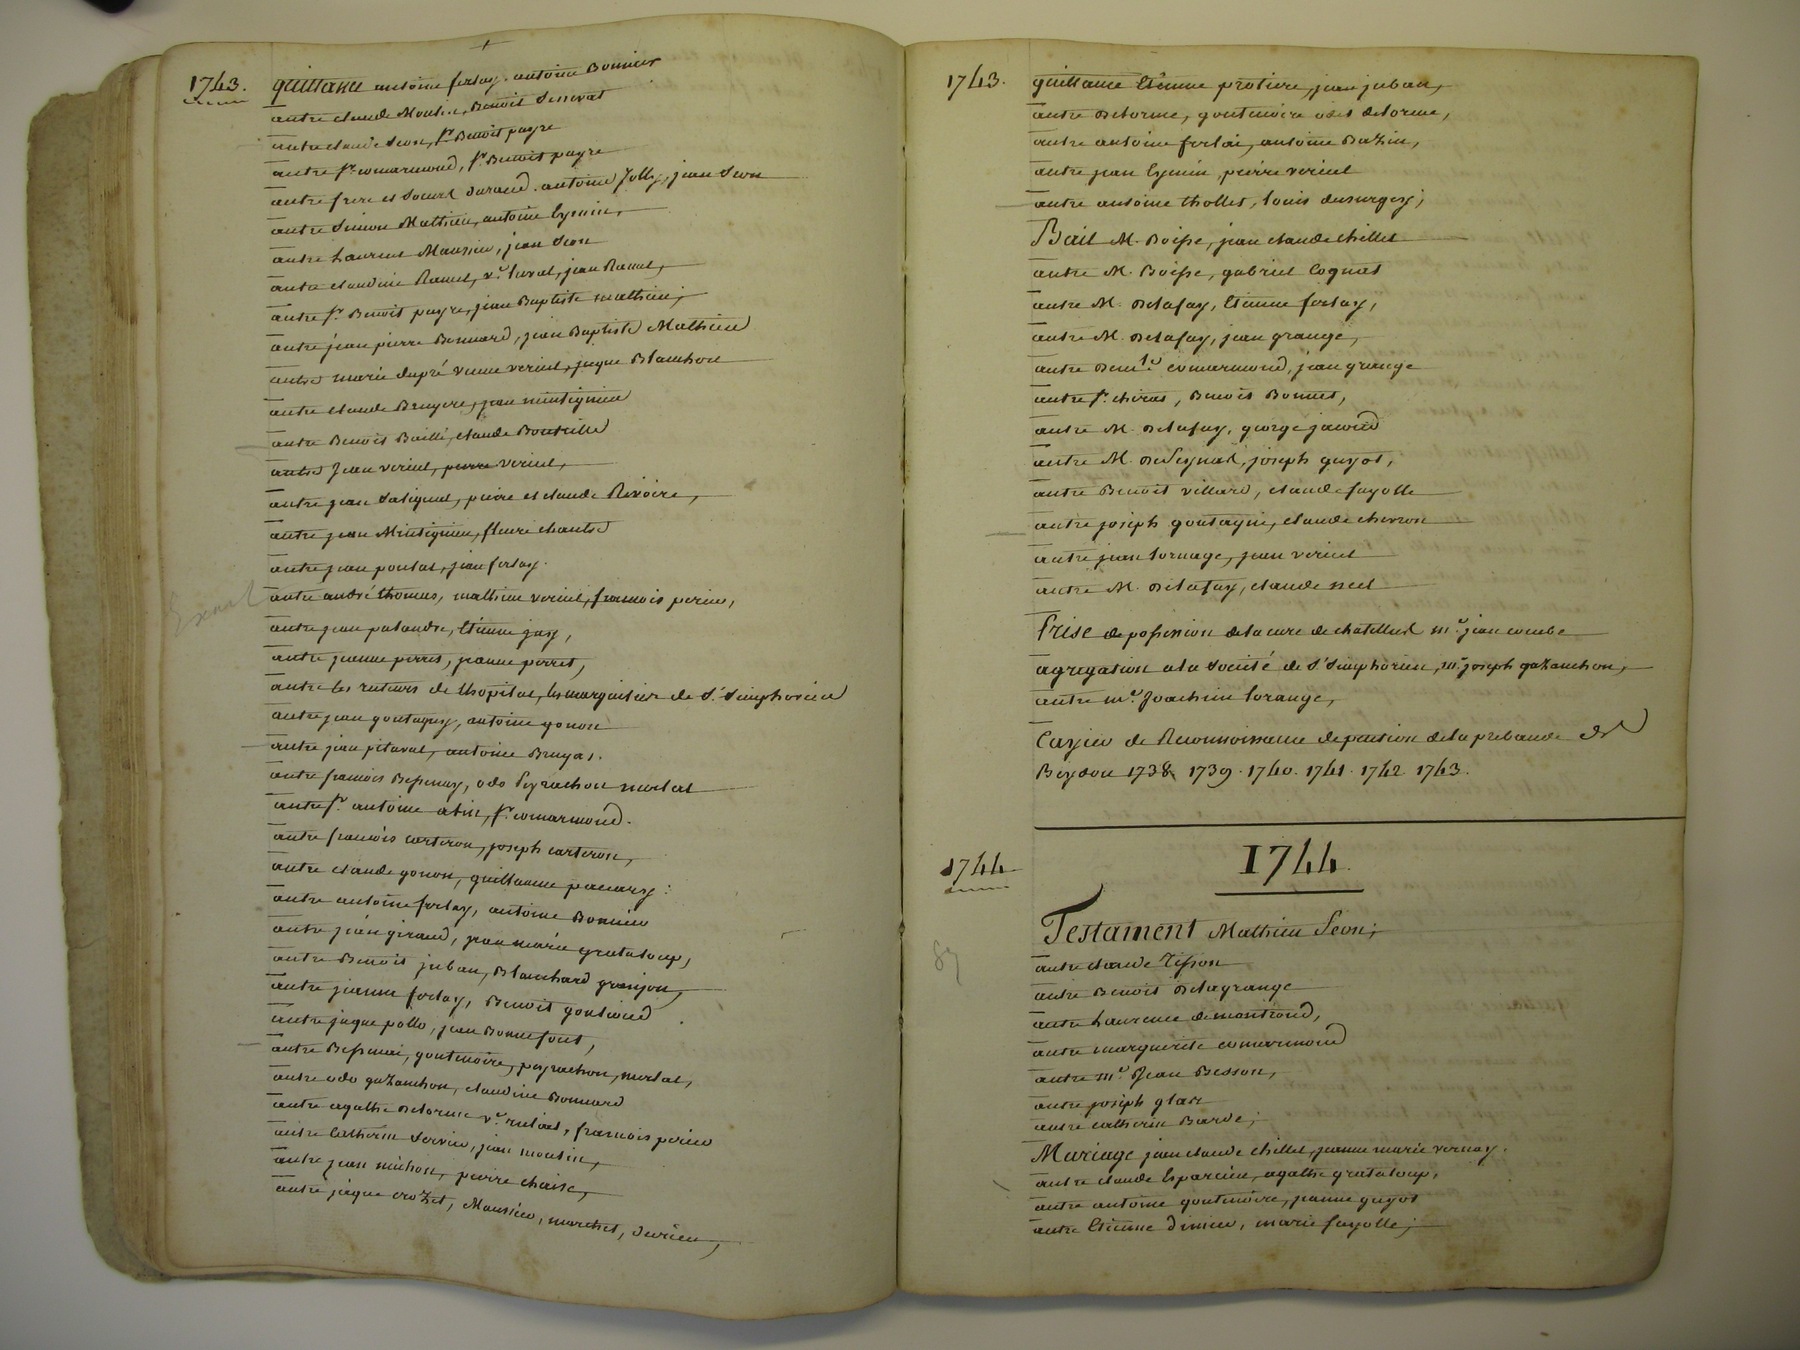 1743. quittance antoine ferlay. antoine Bonnier
autre claude Moulin, Benoit
autre claude Seon, Sr. Benoit payre
autre Sr. comarmond, Sr. Benoit payre
autre frere et soeurs durand. antoine Jolly, jean Seon
autre Simon Mathieu, antoine Eymin,
autre Laurent Maussier, jean Seon
autre claudine Ramel, ve. jean Ramel,
autre Sr. Benoit payre, jean Baptiste mathieu,
autre jean pierre Bonnard, jean Baptiste Mathieu
autre marie dupré veuve vericel, jaque Blanchon
autre claude Bruyere, jean mintignieu
autre Benoit Baillé, claude Bouteille
autre Jean vericel, pierre vericel,
autre jean pierre et claude Rivoire,
autre jean Mintignieu, fleurie chantre
autre jean poulat, jean ferlay.
autre andré thomas, mathieu vericel, francois perieu,
autre jean palandre, Etienne jay,
autre jeanne perret, jeanne perret,
autre les recteurs de lhopital, les marguilier de St. Simphorien
autre jean goutagny, antoine gonon
autre jean pitaval, antoine Bruyas.
autre francois Bessenay, odo peyrachon merlat
autre Sr. antoine Sr. comarmond.
autre francois carteron, joseph carteron,
autre claude gonon, guillaume pacary:
autre antoine ferlay, antoine Bonnier
autre jean giraud, jean marie grataloup,
autre Benoit juban, Blanchard granjon,
autre jeanne ferlay, Benoit
autre jaque pollo, jean Bonnefont,
autre Bessenai, goutenoire, peyrachon, merlat,
autre odo gazanchon, claudine Bonnard
autre agathe Delorme ve. francois perieu
autre Catherin Servier, jean moulin,
autre jean michon, pierre chaise,
autre jaque crozet, Maussier, marchet,
1743. quittance Etienne protiere, jean juban,
autre Delorme, goutenoire delorme,
autre antoine ferlai, antoine Bazin,
autre jean Eymin, pierre vericel
autre antoine thollet, louis
Bail M. Boisse, jean claude chillet
autre M. Boisse, gabriel Cognat
autre M. Delafay, Etienne ferlay,
autre M. Delafay, jean grange,
autre Demle comarmond, jean grange
autre Sr. chirat, Benoit Bonnet,
autre M. Delafay, george
autre M. joseph guyot,
autre Benoit villard, claude fayolle
autre joseph goutagni, claude chevron
autre jean tornage, jean vericel
autre M. Delafay, claude neel
Prise de possession de la cure de chatellus mr. jean combe
agregation a la societé de St. Simphorien, mr. joseph gazanchon,
autre mr. Joachim lorange,
Cayier de Reconnoissance de pention de la prebande de
Beydon 1738. 1739. 1740. 1741. 1742. 1743.
1744
1744
Testament Mathieu Seon;
autre claude Tisson
autre Benoit Delagrange
autre Laurence demontrond,
autre marguerite comarmond
autre mr. Jean Besson,
autre joseph glas
autre catherin Barde;
Mariage jean claude chillet, jeanne marie vernay.
autre claude Esparcieu, agathe grataloup,
autre antoine goutenoire, jeanne guyot
autre Etienne marie fayolle;